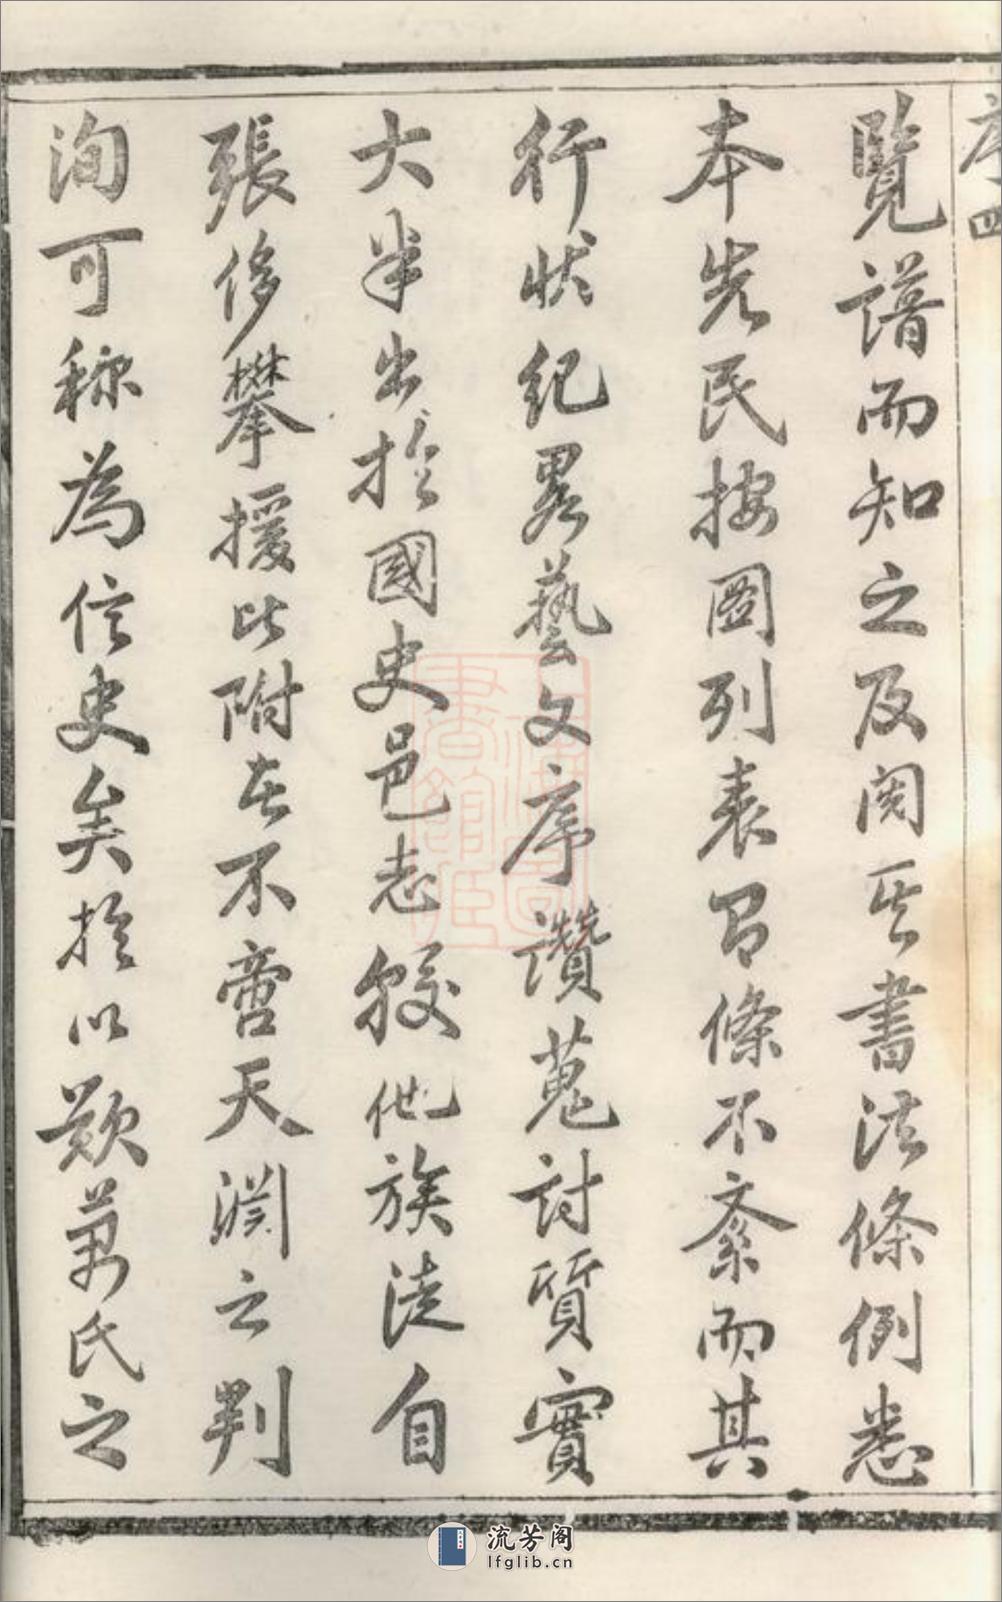 序四
覽譜而知之及閱其書法條例悉
本先民按圖列表眉條不紊而其
行狀紀畧藝文序讚蒐討質實
大半出於國史邑志較他族徒自
張侈攀援比附者不啻天淵之判
洵可称為信史矣於以歎萬氏之
流芳阁
lfglib.cn